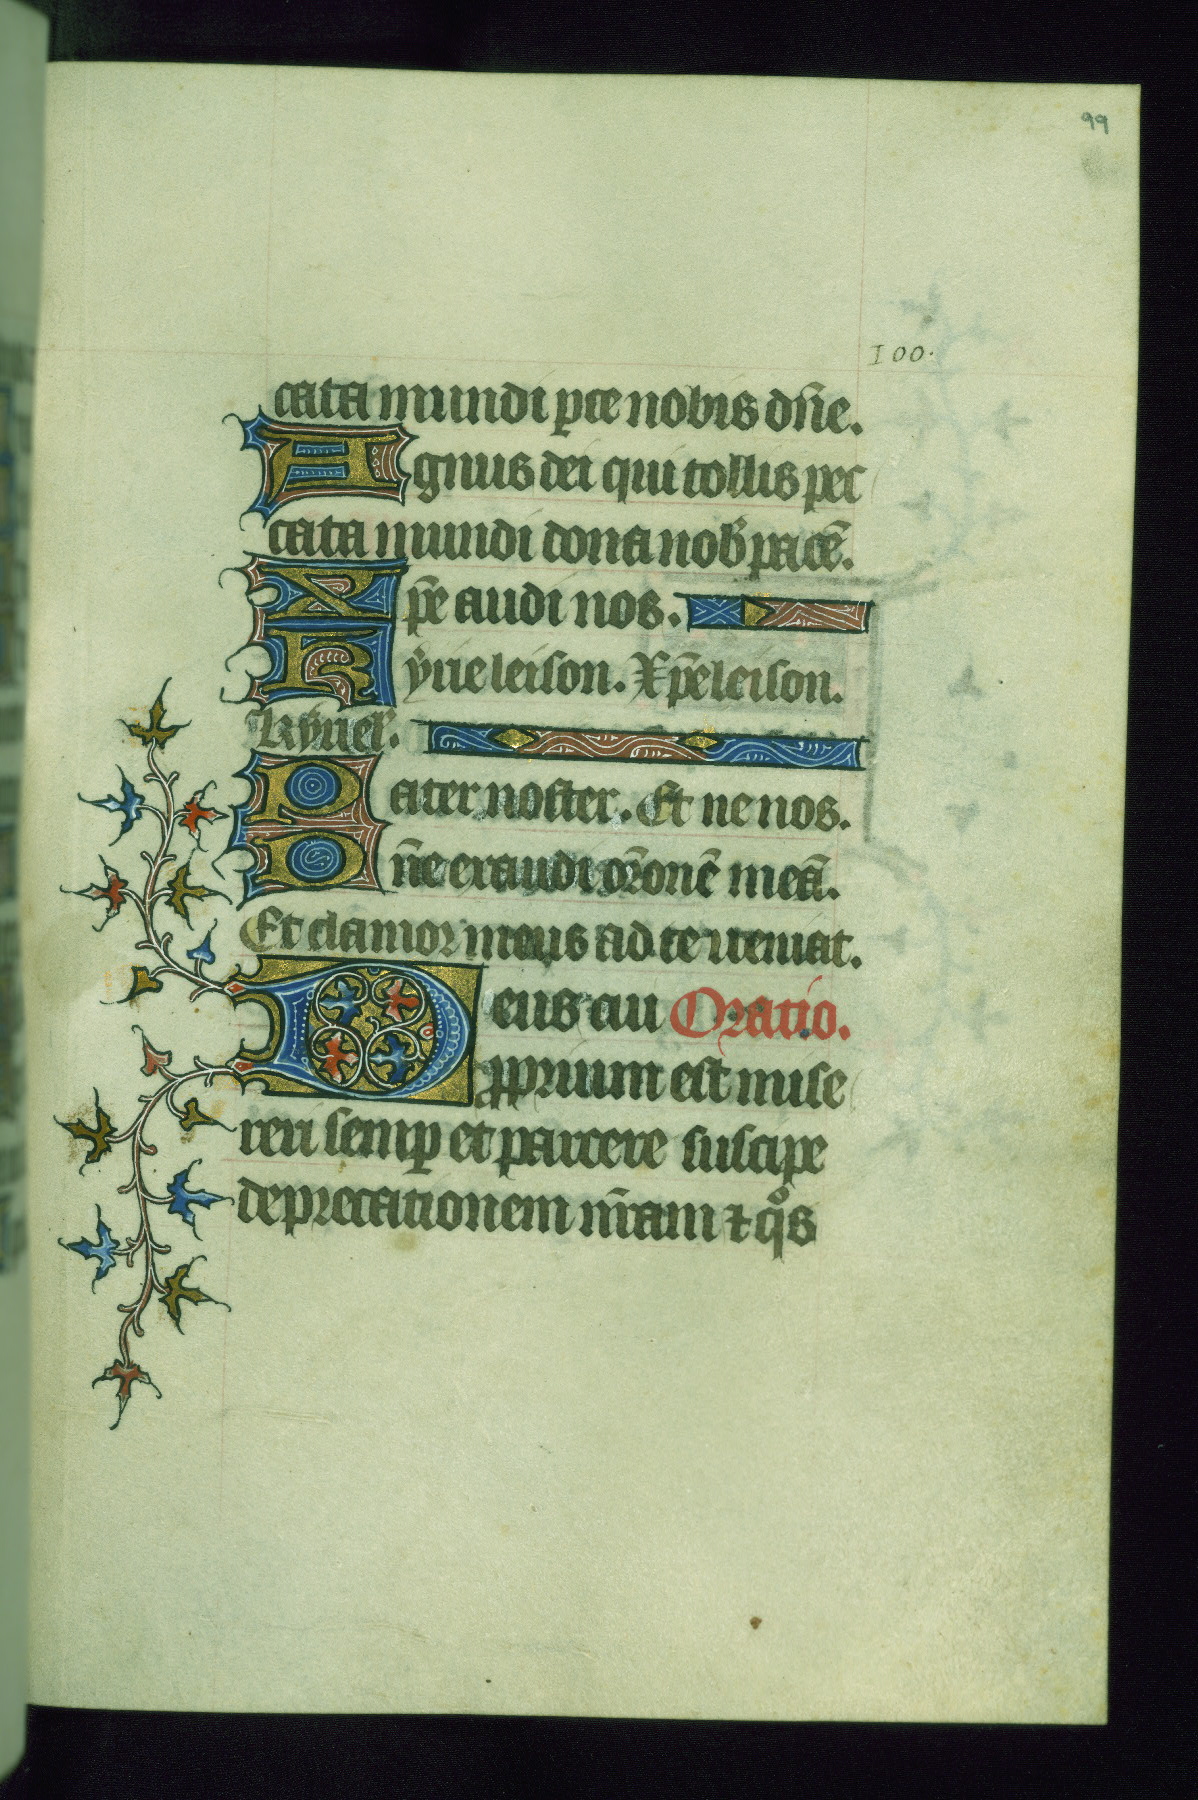 99
100.
cata mundi ꝑce nobis dn̄e.
Agnus dei qui tollis pec
cata mundi dona nob̄ pacē.
Xp̄e audi nos.
Kyrieleison. Xp̄eleison.
Kyriel̄.
Pater noster. Et ne nos.
Dn̄e exaudi or̄onē meā.
Et clamor meus ad te ueniat.
Deus cui Oratio.
ꝓprium est mise
reri semꝑ et parcere suscipe
deprecationem nr̄am ⁊ qͦs